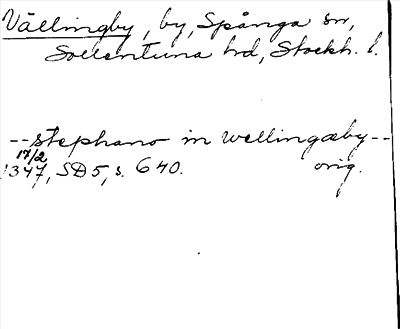 Vällingby, by, Spånga sn,
Sollentuna hd, Stockh. l.
--stephano in wellingæby--
17/2
1347, SD 5, s. 640. orig.